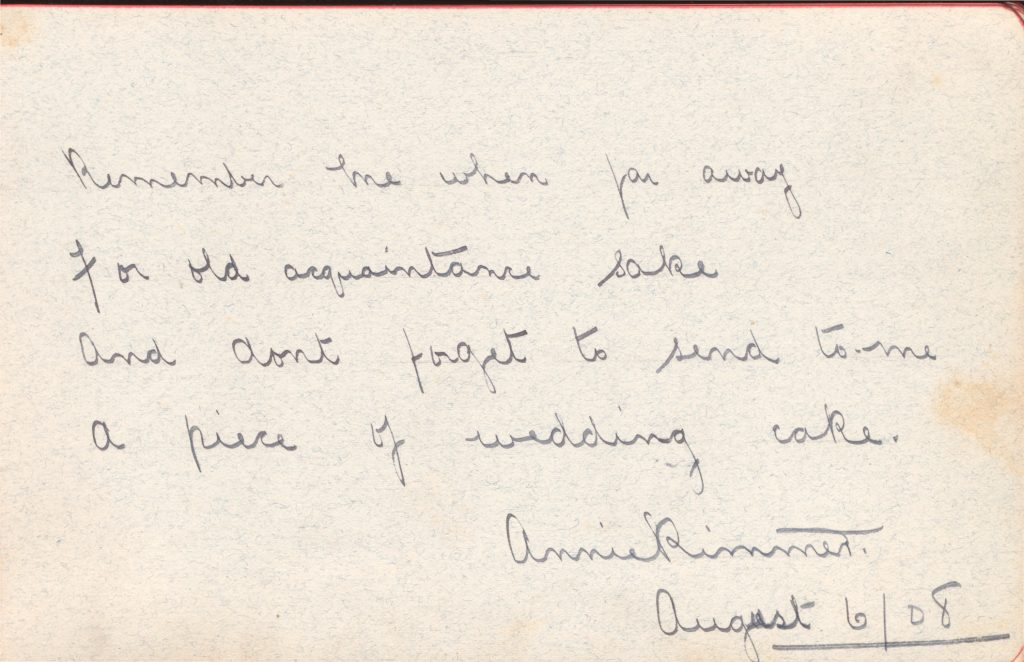 Remember me when far away
For old acquaintance sake
And dont forget to send to-me
A piece of wedding cake.
Annie Rimmer.
August 6/08